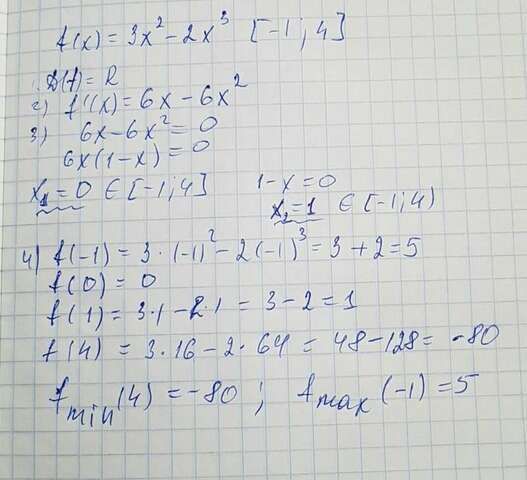 f(x) = 3x² - 2x³ [-1; 4]
1. D(f) = R
2) f'(x) = 6x - 6x²
3) 6x - 6x² = 0
6x(1-x) = 0
x₁ = 0 ∈ [-1; 4] 1-x = 0
x₂ = 1 ∈ [-1; 4)
4) f(-1) = 3 · (-1)² - 2(-1)³ = 3 + 2 = 5
f(0) = 0
f(1) = 3·1 - 2·1 = 3 - 2 = 1
f(4) = 3·16 - 2·64 = 48 - 128 = -80
f min (4) = -80 ; f max (-1) = 5